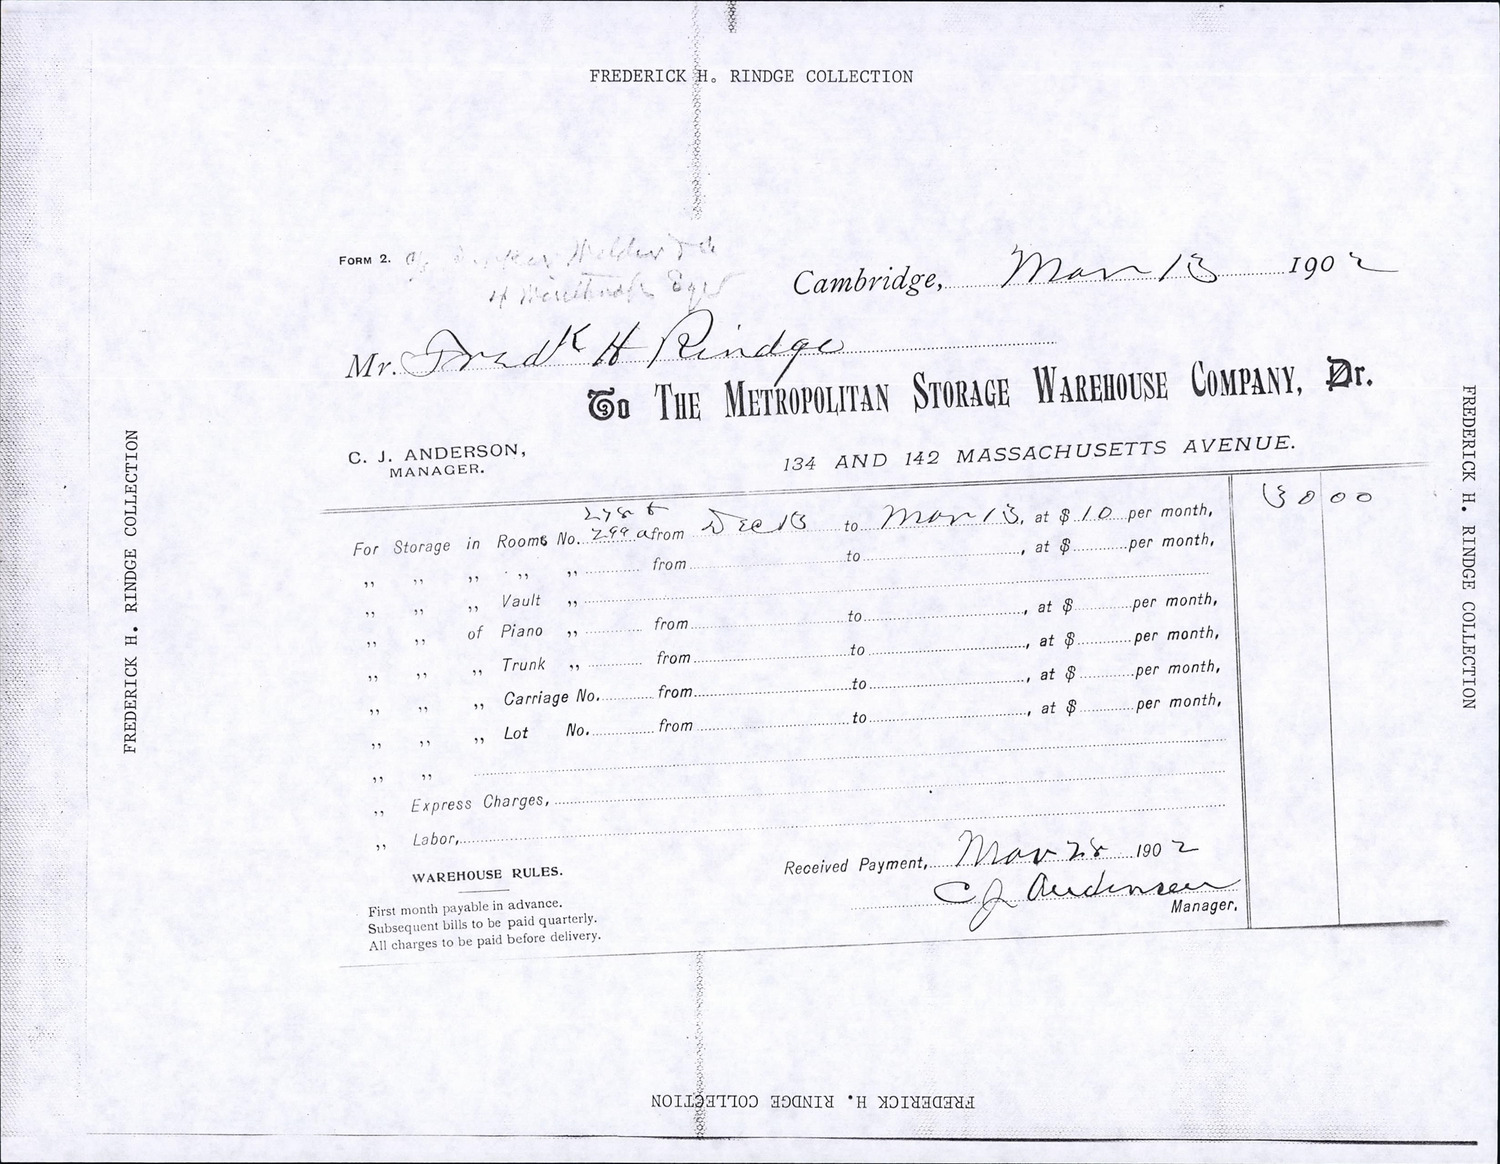 FREDERICK H. RINDGE COLLECTION
FORM 2.
Cambridge, Mar 13 1902
Mr. Fredk H Rindge
To THE METROPOLITAN STORAGE WAREHOUSE COMPANY, Dr.
C. J. ANDERSON,
MANAGER.
134 AND 142 MASSACHUSETTS AVENUE.
For Storage in Rooms No. 299 a from Dec 13 to Mar 13, at $ 10 per month, 30 00
„ „ „ „ „ from to , at $ per month,
„ „ „ Vault „
„ „ of Piano „ from to , at $ per month,
„ „ „ Trunk „ from to , at $ per month,
„ „ „ Carriage No. from to , at $ per month,
„ „ „ Lot No. from to , at $ per month,
„ „
„ Express Charges,
„ Labor,
Received Payment, Mar 28 1902
C J Anderson
Manager.
WAREHOUSE RULES.
First month payable in advance.
Subsequent bills to be paid quarterly.
All charges to be paid before delivery.
FREDERICK H. RINDGE COLLECTION
FREDERICK H. RINDGE COLLECTION
FREDERICK H. RINDGE COLLECTION